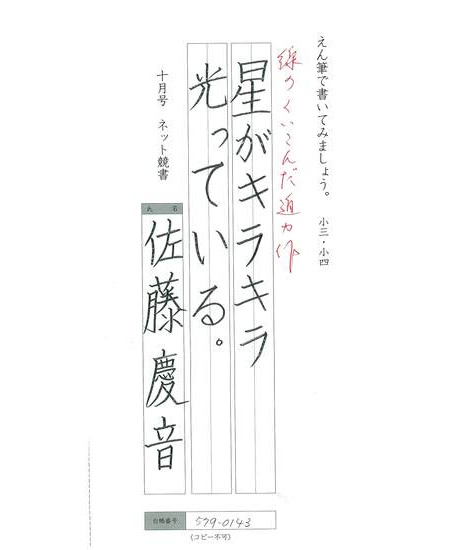 えん筆で書いてみましょう。 小三・小四
線のくいこんだ迫力作
星がキラキラ
光っている。
十月号 ネット競書
氏名
佐藤慶音
台帳番号 579-0143
(コピー不可)